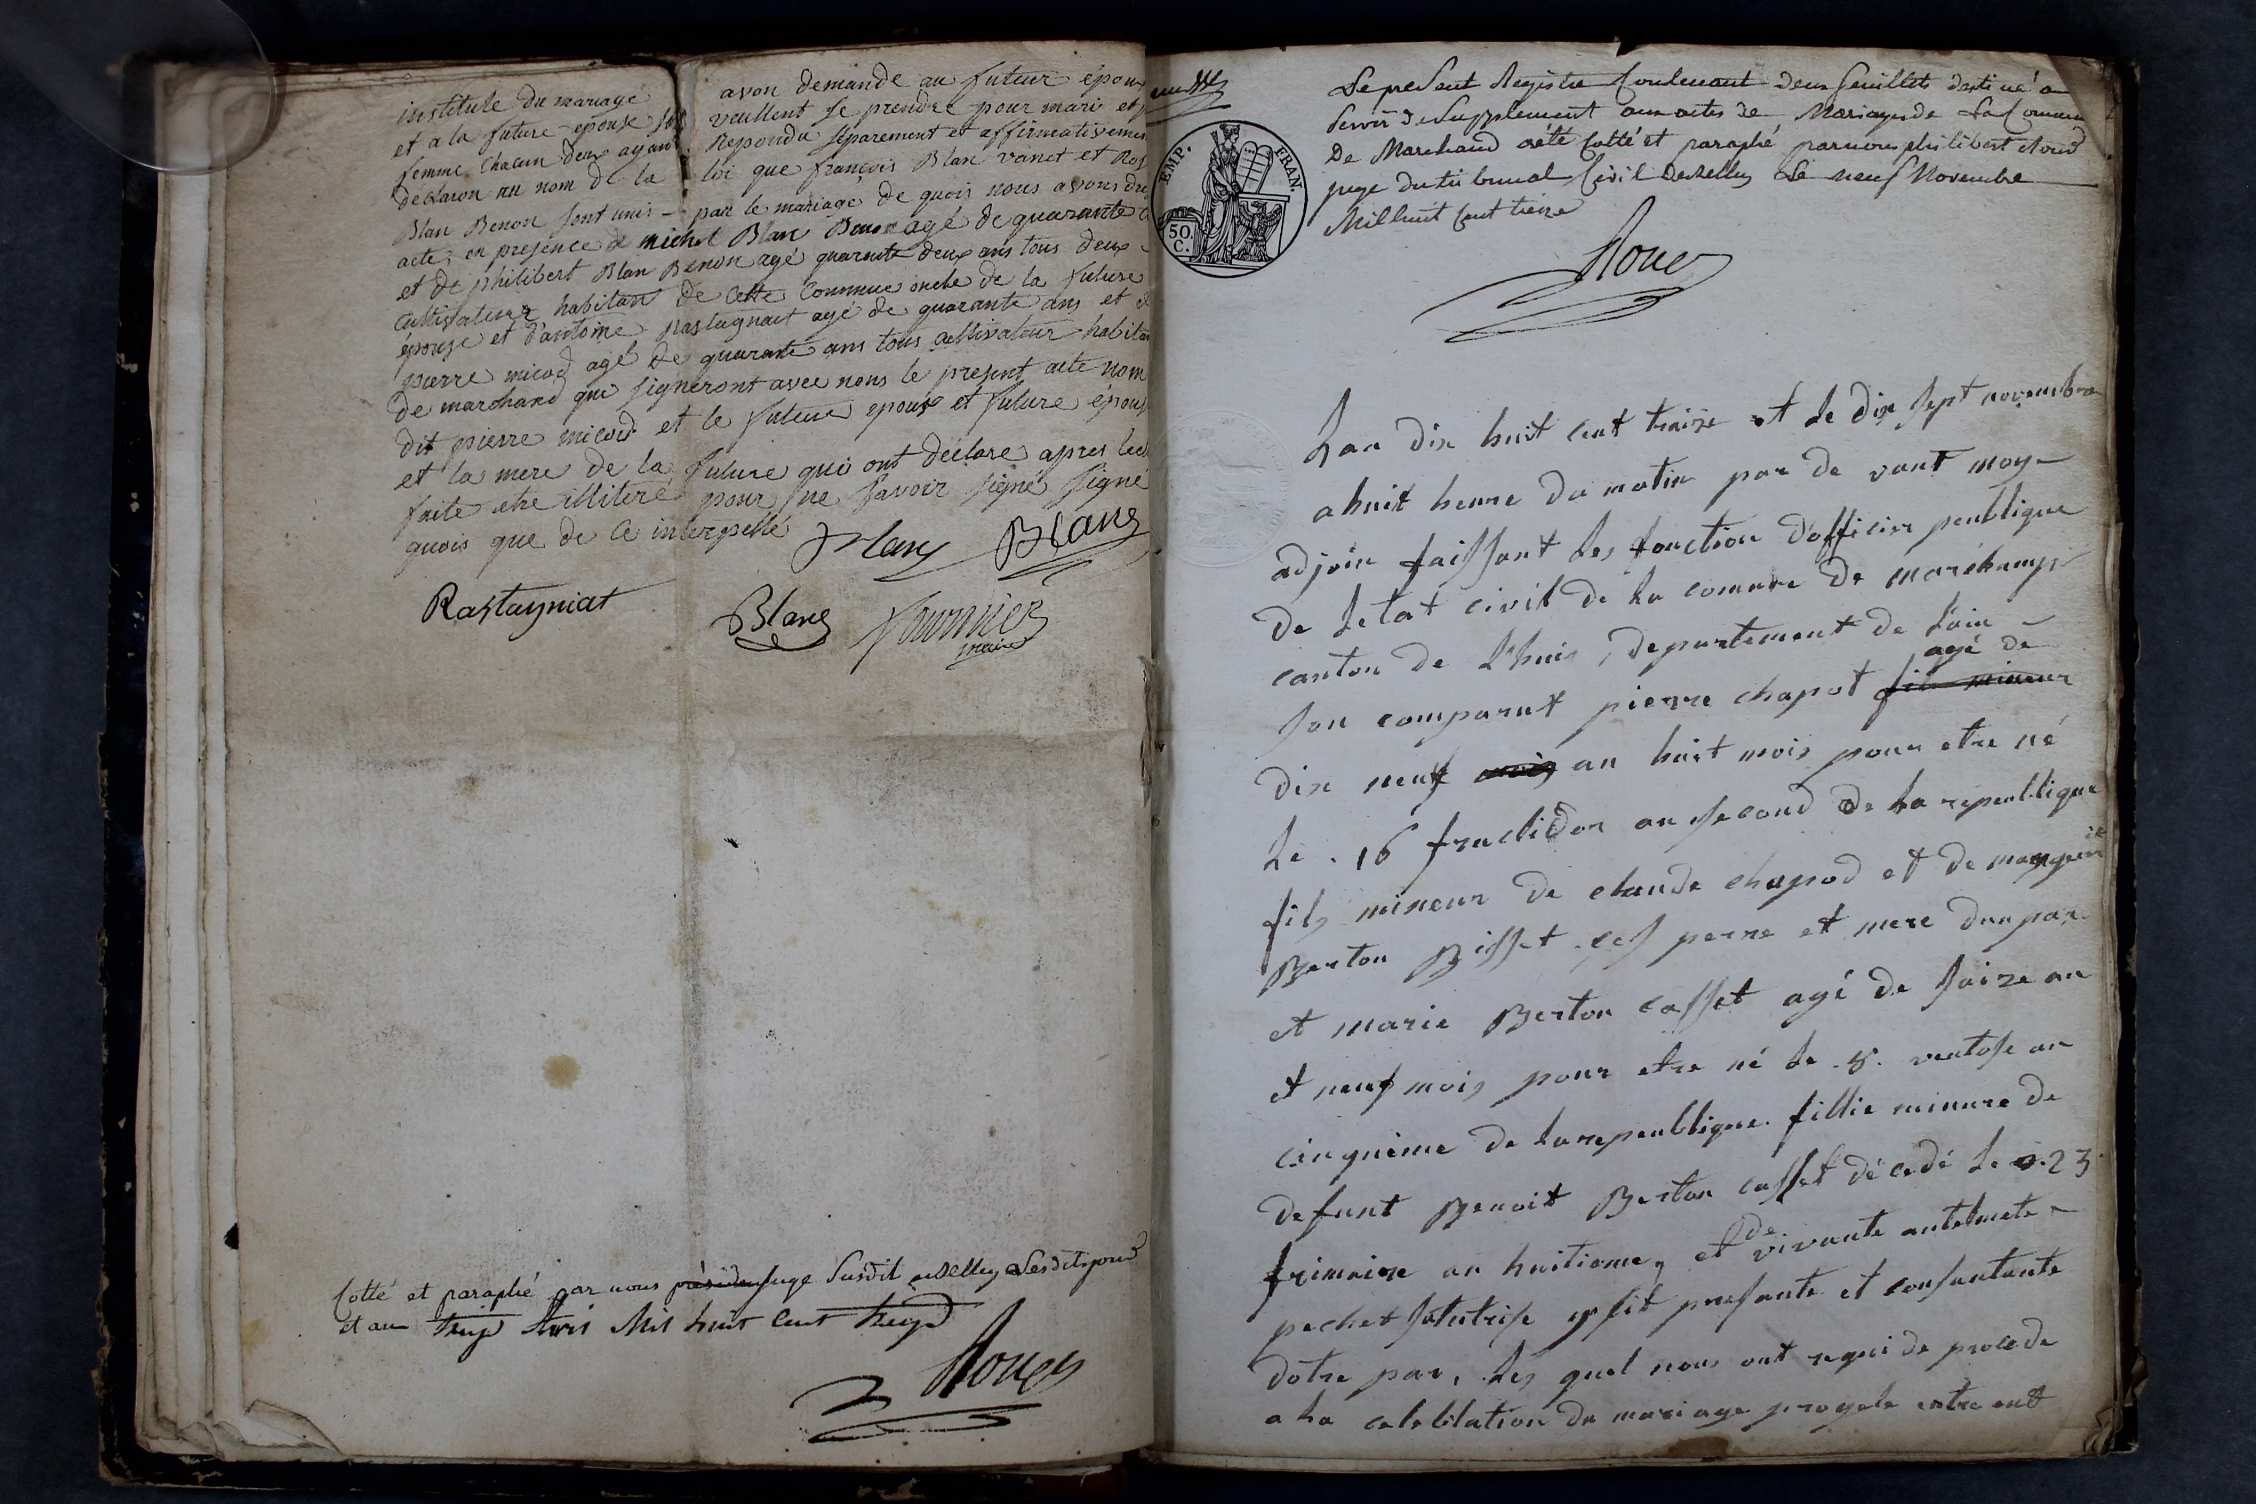 institule du mariage avon demande au futeur épou
et a la future epouse veullent se prendre pour mari et
femme chacun deux ayant Repondu séparement et affirmativemen
declaron au nom de la loi que françois Blan vanet et Ros
Blan Benon sont unis par le mariage de quois nous avons dre
acte, en presence de michel Blan Benon agé de quarante
et de philibert Blan Benon agé quarante deux ans tous deux
cultivateur habitan de cette commune oncle de la future
epouse et d'antoine Rastagniat agé de quarante ans et
pierre micod agé de quarante ans tous cultivateur habitan
de marchand qui signeront avec nous le present acte nom
dit pierre micod et le futeur epoux et future épous
et la mere de la future qui ont déclare apres lec
faite etre illiteré pour ne savoir signé signé
quois que de ce interpellé
Blanc Blanc
Rastagniat Blanc Fournier
maire
Cotté et paraphé par nous présiden juge susdit a Belley Lesdits jour
et an treize Mil huit Cent treize
EMP. FRAN.
50. C.
Le present Registre Contenant deux feuillets destiné a
servir de supplement aux actes de Mariages de La Commun
De Marchand a été Cotté et paraphé par nous philibert
juge du tribunal Civil de Belley Le neuf Novembre
Mil huit Cent treize
Lan dix huit cent traize et le dix sept novembre
a huit heure du matin par de vant moy
adjoin faissant les fonction d'officier peublique
de letat civil de la comune de marchamp
canton de Lhuis, departement de lain
agé de
son comparut pierre chapot fils mineur
dix neuf mois an huit mois pour etre né
le . 16 fructidor an second de la republique
fils mineur de claude chapod et de
Berton Bisset ces perre et mere dun par
et marie Berton casset agé de saize an
et neuf mois pour etre né le . 8 . ventose an
cinquieme de la repeublique. fillie minure de
defunt Benoit Berton casset décedé le 23
de
frimaire an huitieme, et vivante antelmete
pechet sa tutrise y sit presante et consantante
dotre par, les quel nous ont requi de procede
a la celebration du mariage progete entre eut